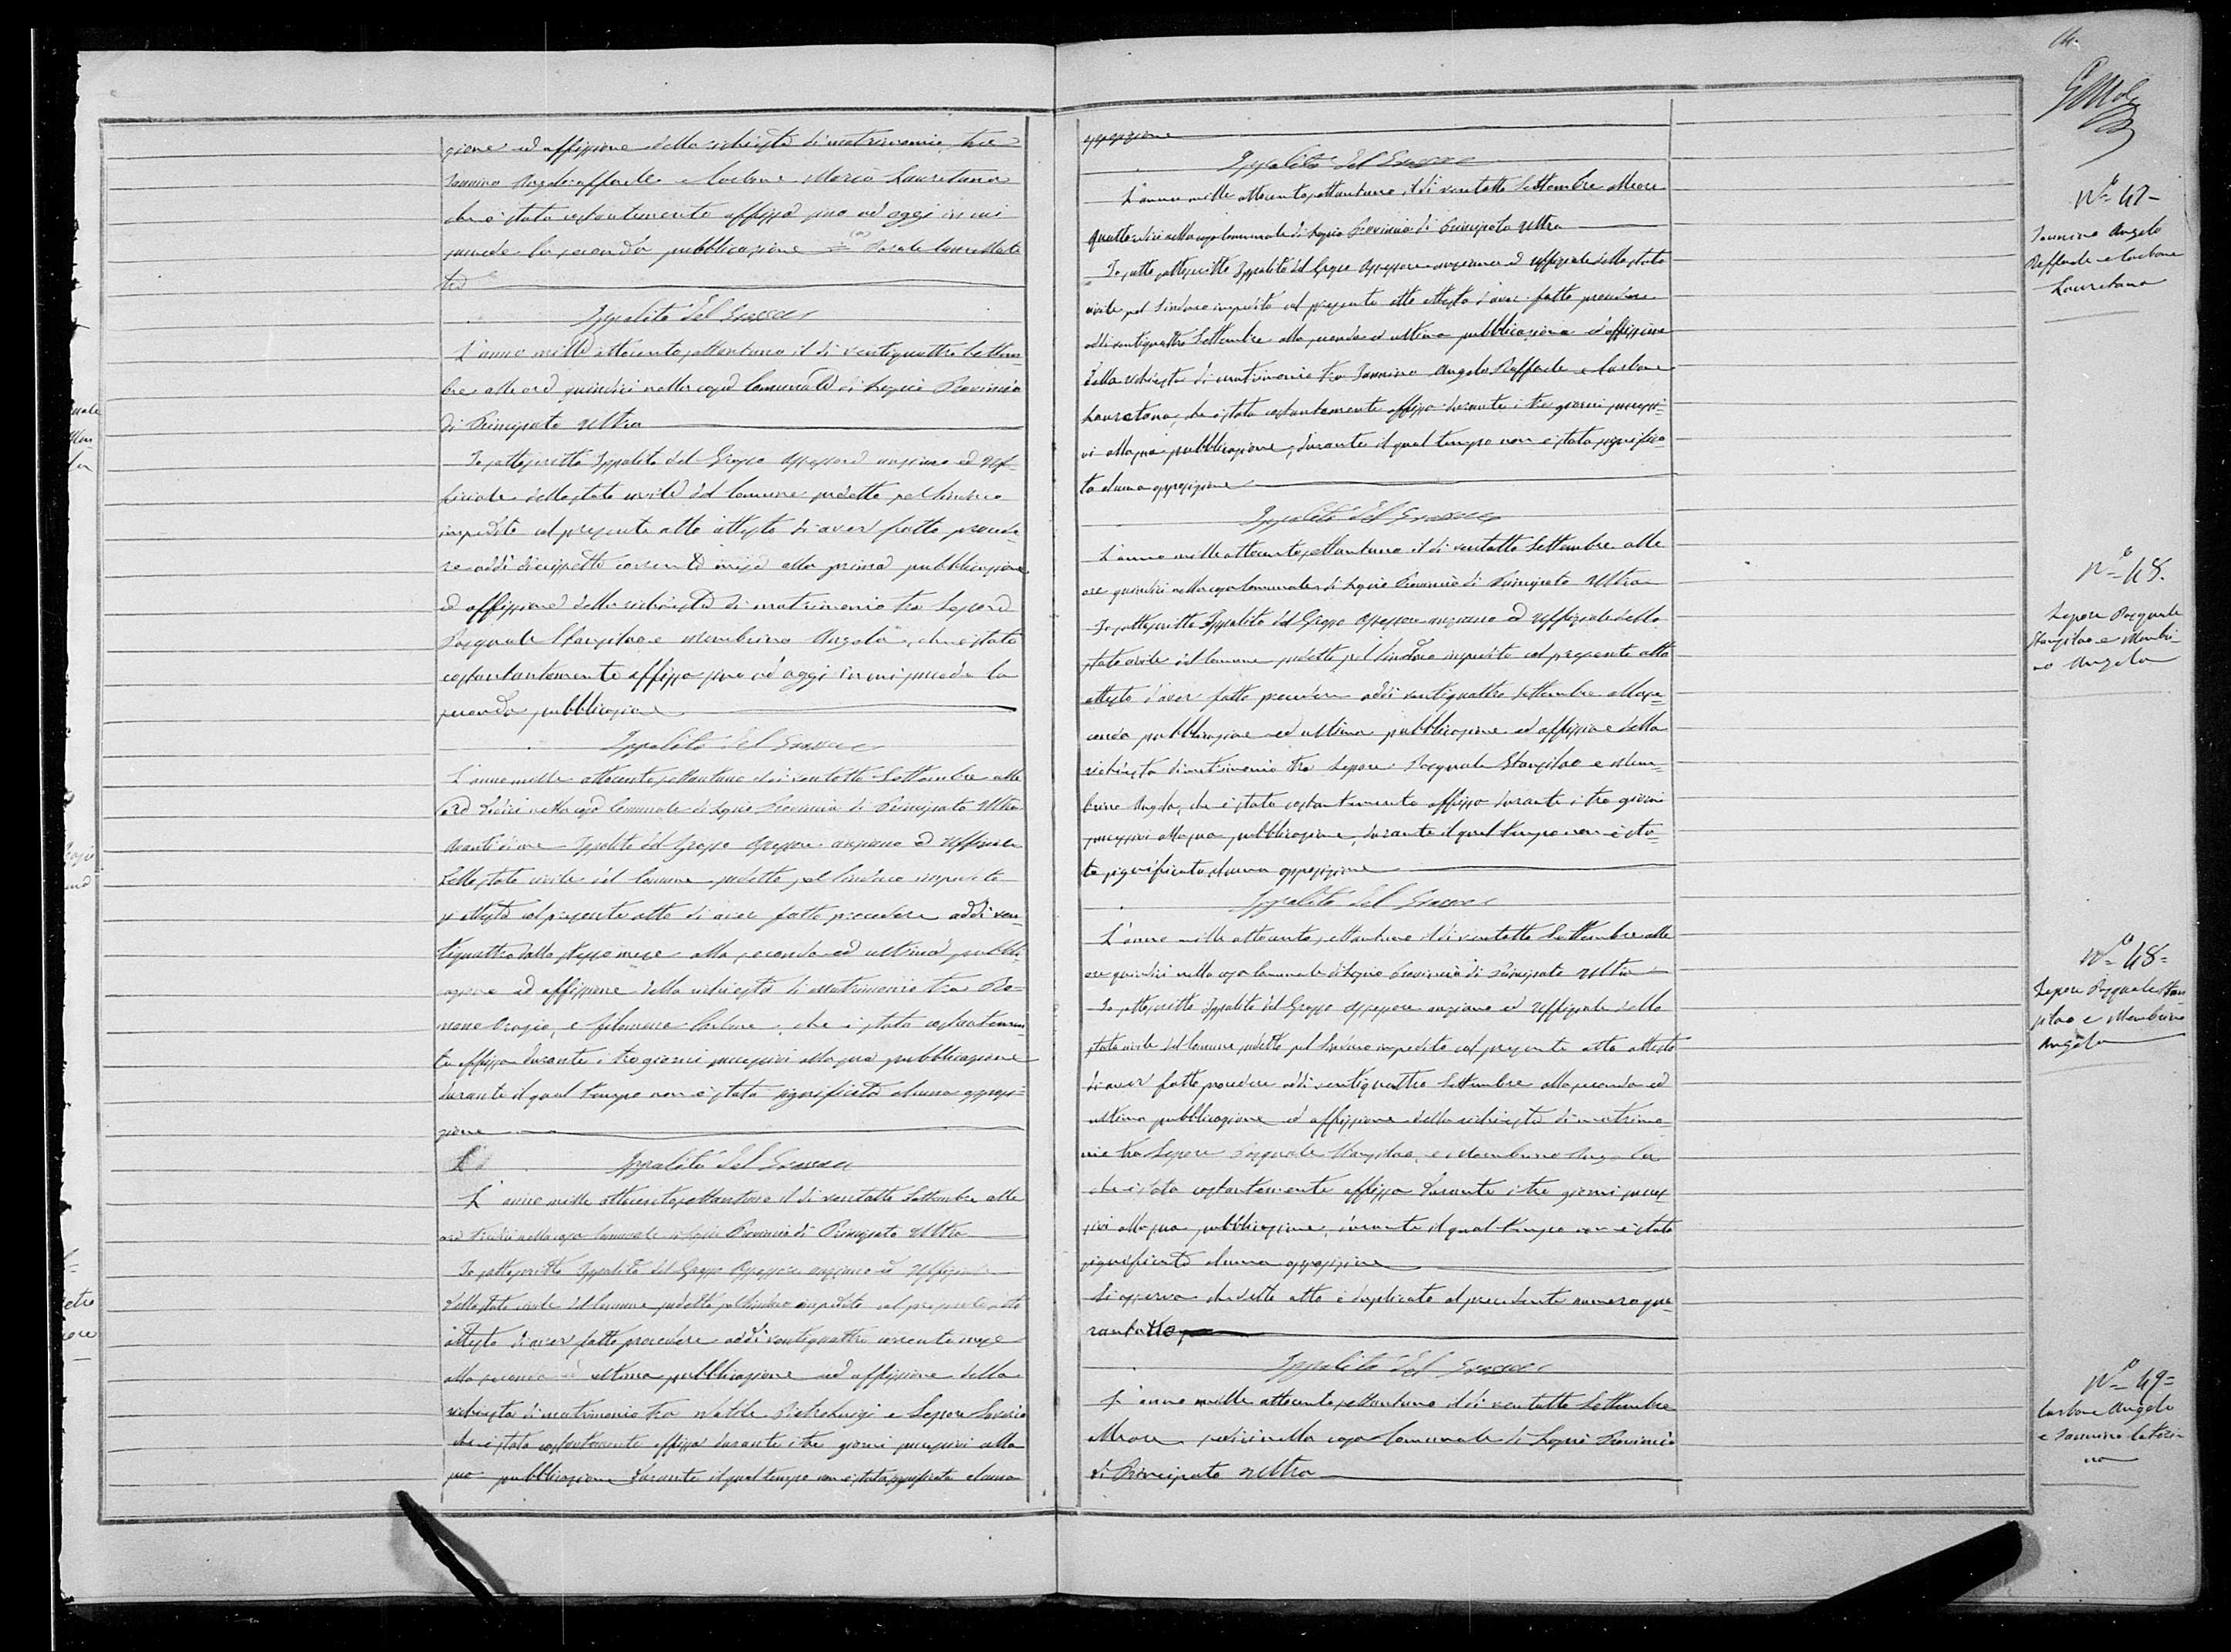 zione ed affissione della richiesta di matrimonio tra
Iannino Angeloraffaele e Carbone Maria Lauretana
che è stata costantemente affissa sino ad oggi in cui
procede la seconda pubblicazione = (a) Parole cancellate
tre
Ippolito del Grosso
L'anno mille ottocento settantuno il di ventiquattro Settem=
bre alle ore quindici nella casa Comunale di Lapio Provincia
di Principato Ultra
Io sottoscritto Ippolito del Grosso Assessore anziano ed Uf=
ficiale dello stato civile del Comune suddetto pel Sindaco
impedito col presente atto attesto di aver fatto procede=
re addi diciassette corrente mese alla prima pubblicazione
ed affissione della richiesta di matrimonio tra Lepore
Pasquale Stanislao e Membrino Angela, che è stata
costantemente affissa sino ad oggi in cui procede la
seconda pubblicazione
Ippolito del Grosso
L'anno mille ottocento settantuno il di ventotto Settembre alle
ore dodici nella casa Comunale di Lapio Provincia di Principato Ultra
Avanti di me Ippolito del Grosso Assessore anziano ed Ufficiale
dello stato civile del Comune suddetto pel Sindaco impedito
si attesta col presente atto di aver fatto procedere addi ven
tiquattro dello stesso mese alla seconda ed ultima pubbli=
cazione ed affissione della richiesta di matrimonio tra Ro=
mano Orazio, e Filomena Carbone, che è stata costantemen
te affissa durante i tre giorni successivi alla sua pubblicazione
durante il qual tempo non è stata significata alcuna opposi=
zione
Ippolito del Grosso
L'anno mille ottocento settantuno il di ventotto Settembre alle
ore tredici nella casa Comunale di Lapio Provincia di Principato Ultra
Io sottoscritto Ippolito del Grosso Assessore anziano ed Uffiziale
dello stato civile del Comune suddetto pel Sindaco impedito col presente atto
attesto di aver fatto procedere addi ventiquattro corrente mese
alla seconda ed ultima pubblicazione ed affissione della
richiesta di matrimonio tra Pietroluigi e Lepore
che è stata costantemente affissa durante i tre giorni successivi alla
sua pubblicazione durante il qual tempo non è stata significata alcuna
opposizione
Ippolito del Grosso
L'anno mille ottocento settantuno il di ventotto Settembre alle ore
quattordici nella casa Comunale di Lapio Provincia di Principato Ultra
Io sottoscritto Ippolito del Grosso Assessore anziano ed Uffiziale dello stato
civile pel Sindaco impedito col presente atto attesto d'aver fatto procedere
addi ventiquattro Settembre alla seconda ed ultima pubblicazione ed affissione
della richiesta di matrimonio tra Iannino Angelo Raffaele e Carbone
Lauretana, che è stata costantemente affissa durante i tre giorni successi=
vi alla sua pubblicazione, durante il qual tempo non è stata significa
ta alcuna opposizione
Ippolito del Grosso
L'anno mille ottocento settantuno il di ventotto Settembre alle
ore quindici nella casa Comunale di Lapio Provincia di Principato Ultra
Io sottoscritto Ippolito del Grosso Assessore anziano ed Uffiziale dello
stato civile del Comune suddetto pel Sindaco impedito col presente atto
attesto d'aver fatto procedere addi ventiquattro Settembre alla se=
conda pubblicazione ed ultima pubblicazione ed affissione della
richiesta di matrimonio tra Lepore Pasquale Stanislao e Mem=
brino Angela, che è stata costantemente affissa durante i tre giorni
successivi alla sua pubblicazione, durante il qual tempo non è sta=
ta significata alcuna opposizione
Ippolito del Grosso
L'anno mille ottocento settantuno il di ventotto Settembre alle
ore quindici nella casa Comunale di Lapio Provincia di Principato Ultra
Io sottoscritto Ippolito del Grosso Assessore anziano ed Uffiziale dello
stato civile del Comune suddetto pel Sindaco impedito col presente atto attesto
di aver fatto procedere addi ventiquattro Settembre alla seconda ed
ultima pubblicazione ed affissione della richiesta di matrimo
nio tra Lepore Pasquale Stanislao, e Membrino Angela
che è stata costantemente affissa durante i tre giorni succes
sivi alla sua pubblicazione, durante il qual tempo non è stata
significata alcuna opposizione
Si osserva che detto atto è duplicato al precedente numero qua
rantotto
Ippolito del Grosso
L'anno mille ottocento settantuno il di ventotto Settembre
alle ore sedici nella casa Comunale di Lapio Provincia
di Principato Ultra
14.
N.o 47-
Iannino Angelo
Raffaele e Carbone
Lauretana
N.o 48.
Lepore Pasquale
Stanislao e Membri=
no Angela
N.o 48=
Lepore Pasquale Stan
islao e Membrino
Angela
N.o 49=
Carbone Angelo
e Iannino Cateri
na